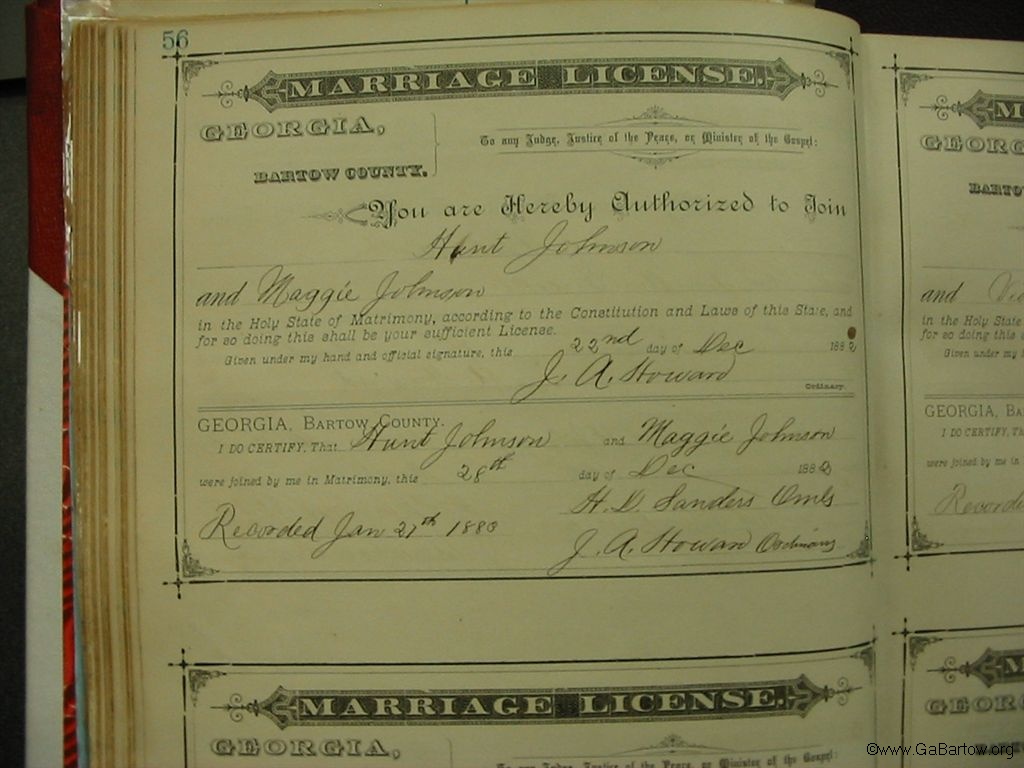 56
MARRIAGE LICENSE.
GEORGIA,
BARTOW COUNTY.
To any Judge, Justice of the Peace, or Minister of the Gospel:
You are Hereby Authorized to Join
Hunt Johnson
and Maggie Johnson
in the Holy State of Matrimony, according to the Constitution and Laws of this State, and
for so doing this shall be your sufficient License.
Given under my hand and official signature, this 22nd day of Dec 1882
J. A. Howard
Ordinary.
GEORGIA, BARTOW COUNTY.
I DO CERTIFY, That Hunt Johnson and Maggie Johnson
were joined by me in Matrimony, this 28th day of Dec 1882
H. D. Sanders
Recorded Jan 27th 1883
J. A. Howard Ordinary
MARRIAGE LICENSE.
GEORGIA,
To any Judge, Justice of the Peace, or Minister of the Gospel:
M
GEORG
BARTO
and
in the Holy State
for so doing this s
Given under my
GEORGIA, BA
I DO CERTIFY, Th
were joined by me in
Recorde
GEORG
©www.GaBartow.org